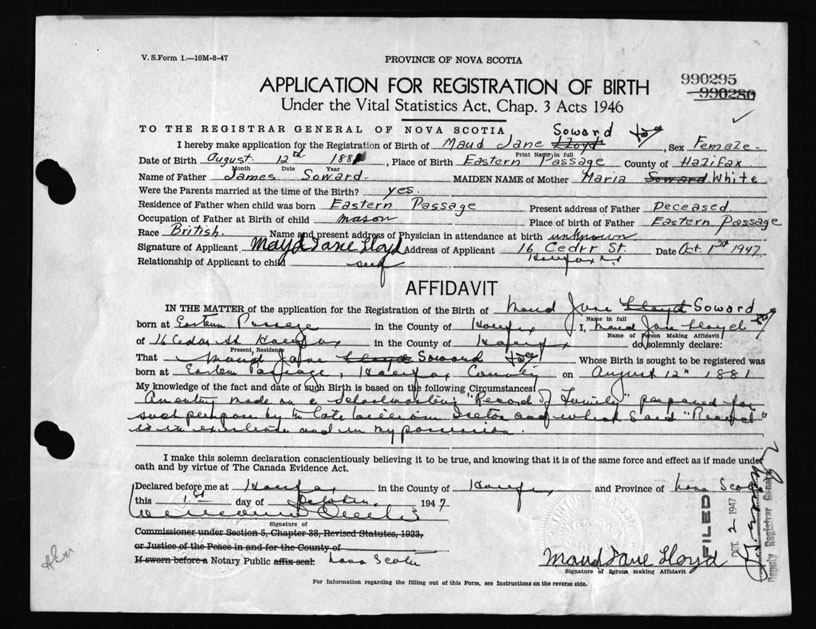 V. S. Form 1.—10M-8-47
PROVINCE OF NOVA SCOTIA
APPLICATION FOR REGISTRATION OF BIRTH
990295
990280
Under the Vital Statistics Act, Chap. 3 Acts 1946
TO THE REGISTRAR GENERAL OF NOVA SCOTIA
I hereby make application for the Registration of Birth of Maud Jane Lloyd Soward, Sex Female.
Print Name in full
Date of Birth August 12th 1881, Place of Birth Eastern Passage County of Halifax
Month Date Year
Name of Father James Soward. MAIDEN NAME of Mother Maria Soward White
Were the Parents married at the time of the Birth? yes.
Residence of Father when child was born Eastern Passage Present address of Father Deceased
Occupation of Father at Birth of child mason Place of birth of Father Eastern Passage
Race British. Name and present address of Physician in attendance at birth unknown
Signature of Applicant Maud Jane Lloyd Address of Applicant 16 Cedar St. Date Oct 1st 1947
Relationship of Applicant to child self Halifax
AFFIDAVIT
IN THE MATTER of the application for the Registration of the Birth of Maud Jane Lloyd Soward
Name in full
born at Eastern Passage in the County of Halifax I, Maud Jane Lloyd
Name of Person Making Affidavit
of 16 Cedar St Halifax in the County of Halifax do solemnly declare:
Present Residence
That Maud Jane Lloyd Soward Whose Birth is sought to be registered was
born at Eastern Passage, Halifax County on August 12th 1881
My knowledge of the fact and date of such Birth is based on the following Circumstances:
An entry made on a "Record of Family" prepared for
such purpose by the late William and which said "Record"
is in existence and in my possession.
I make this solemn declaration conscientiously believing it to be true, and knowing that it is of the same force and effect as if made under
oath and by virtue of The Canada Evidence Act.
Declared before me at Halifax in the County of Halifax and Province of Nova Scotia
this 1st day of October 1947
Signature of
Commissioner under Section 5, Chapter 38, Revised Statutes, 1923,
or Justice of the Peace in and for the County of
If sworn before a Notary Public affix seal. Nova Scotia
Maud Jane Lloyd
Signature of Person making Affidavit
FILED
OCT. 2 1947
Deputy Registrar General
For information regarding the filling out of this Form, see Instructions on the reverse side.